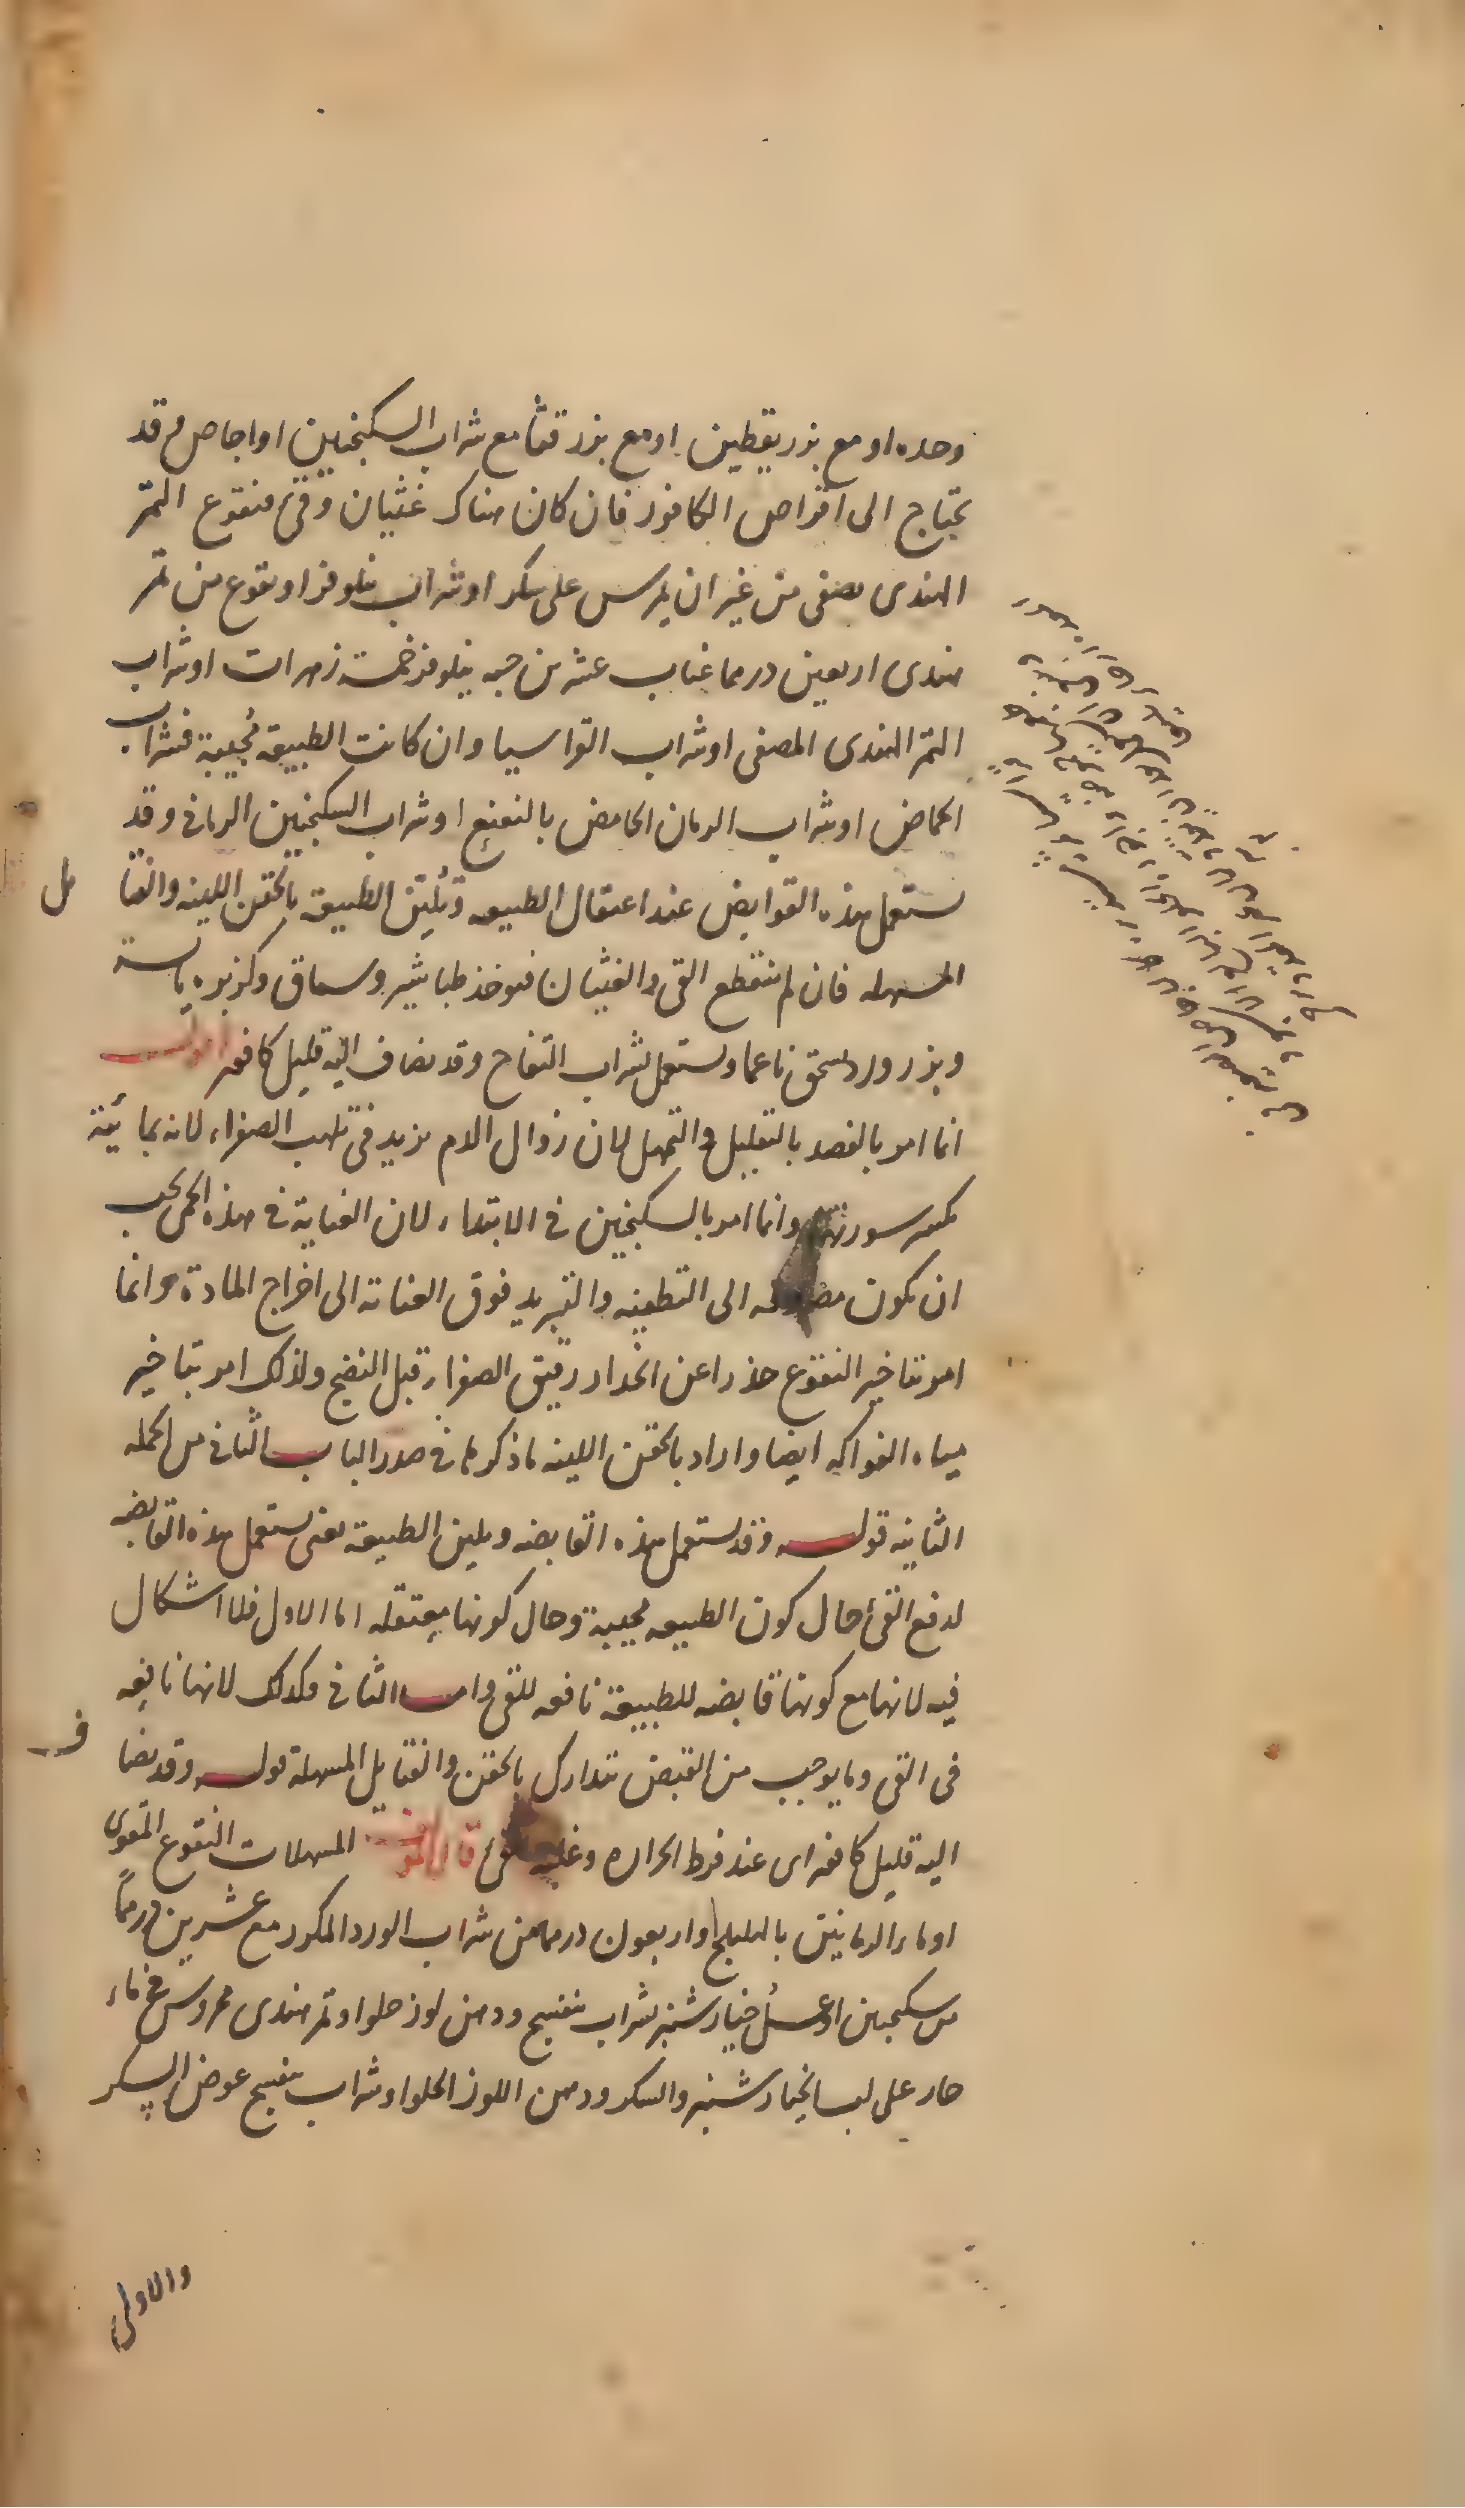 وحده او مع بزر يقطين او مع بزر قثا مع شراب السكنجبين او اجاص م قد
يحتاج الى اقراص الكافور فان كان هناك غثيان وقئ فنقوع التمر
الهندى يصفى من غير ان يمرس على سكر او شراب نيلوفر او نقوع من تمر
هندى اربعين درهما عناب عشرين حبه نيلوفر خمسة زهرات او شراب
التمر الهندى المصفى او شراب القراسيا وان كانت الطبيعة مجيبة فشراب
الحماض او شراب الرمان الحامض بالنعنع او شراب السكنجبين الرمانى وقد
يستعمل هذه القوابض عند اعتقال الطبيعه وتليّن الطبيعة بالحقن اللينه والفتا
يل
المسهله فان لم ينقطع القئ والغثيان فيوخذ طباشير وسماق وكزبره يابسة
وبزر ورد يسحق ناعما ويستعمل بشراب التفاح وقد يضاف اليه قليل كافور
انما امر بالفصد بالتقليل والتمهل لان زوال الدم يزيد فى تلهب الصفراء لانه بمائيته
يكسر سورتها وانما امر بالسكنجبين فى الابتداء لان العناية فى هذه الحمى يجب
ان يكون مصروفه الى التطفيه والتبريد فوق العناية الى اخراج المادة وانما
امر بتاخير النقوع حذرا عن انحدار رقيق الصفراء قبل النضج ولذلك امر بتاخير
مياه الفواكه ايضا واراد بالحقن اللينه ما ذكرها فى صدر الباب الثانى من الجمله
الثانيه قوله وقد يستعمل هذه القابضه ويلين الطبيعة يعنى يستعمل هذه القابضه
لدفع القئ حال كون الطبيعه مجيبة وحال كونها معتقله اما الاول فلا اشكال
فيه لانها مع كونها قابضه للطبيعة نافعه للقئ واما الثانى فكذلك لانها نافعه
فى القى وما يوجب من القبض يتدارك بالحقن والفتايل المسهلة قوله وقد يضا
ف
اليه قليل كافور اى عند فرط الحراره وغلبه القئ قال المولف المسهلات النقوع المقوى
او ماء الرمانين بالهليلج او اربعون درهما من شراب الورد المكرر مع عشرين درهماً
من سكنجبين او عسل خيار شنبر بشراب بنفسج ودهن لوز حلو او تمر هندى ممروس فى ماء
حار على لب الخيار شنبر والسكر ودهن اللوز الحلو او شراب بنفسج عوض السكر
والاولى